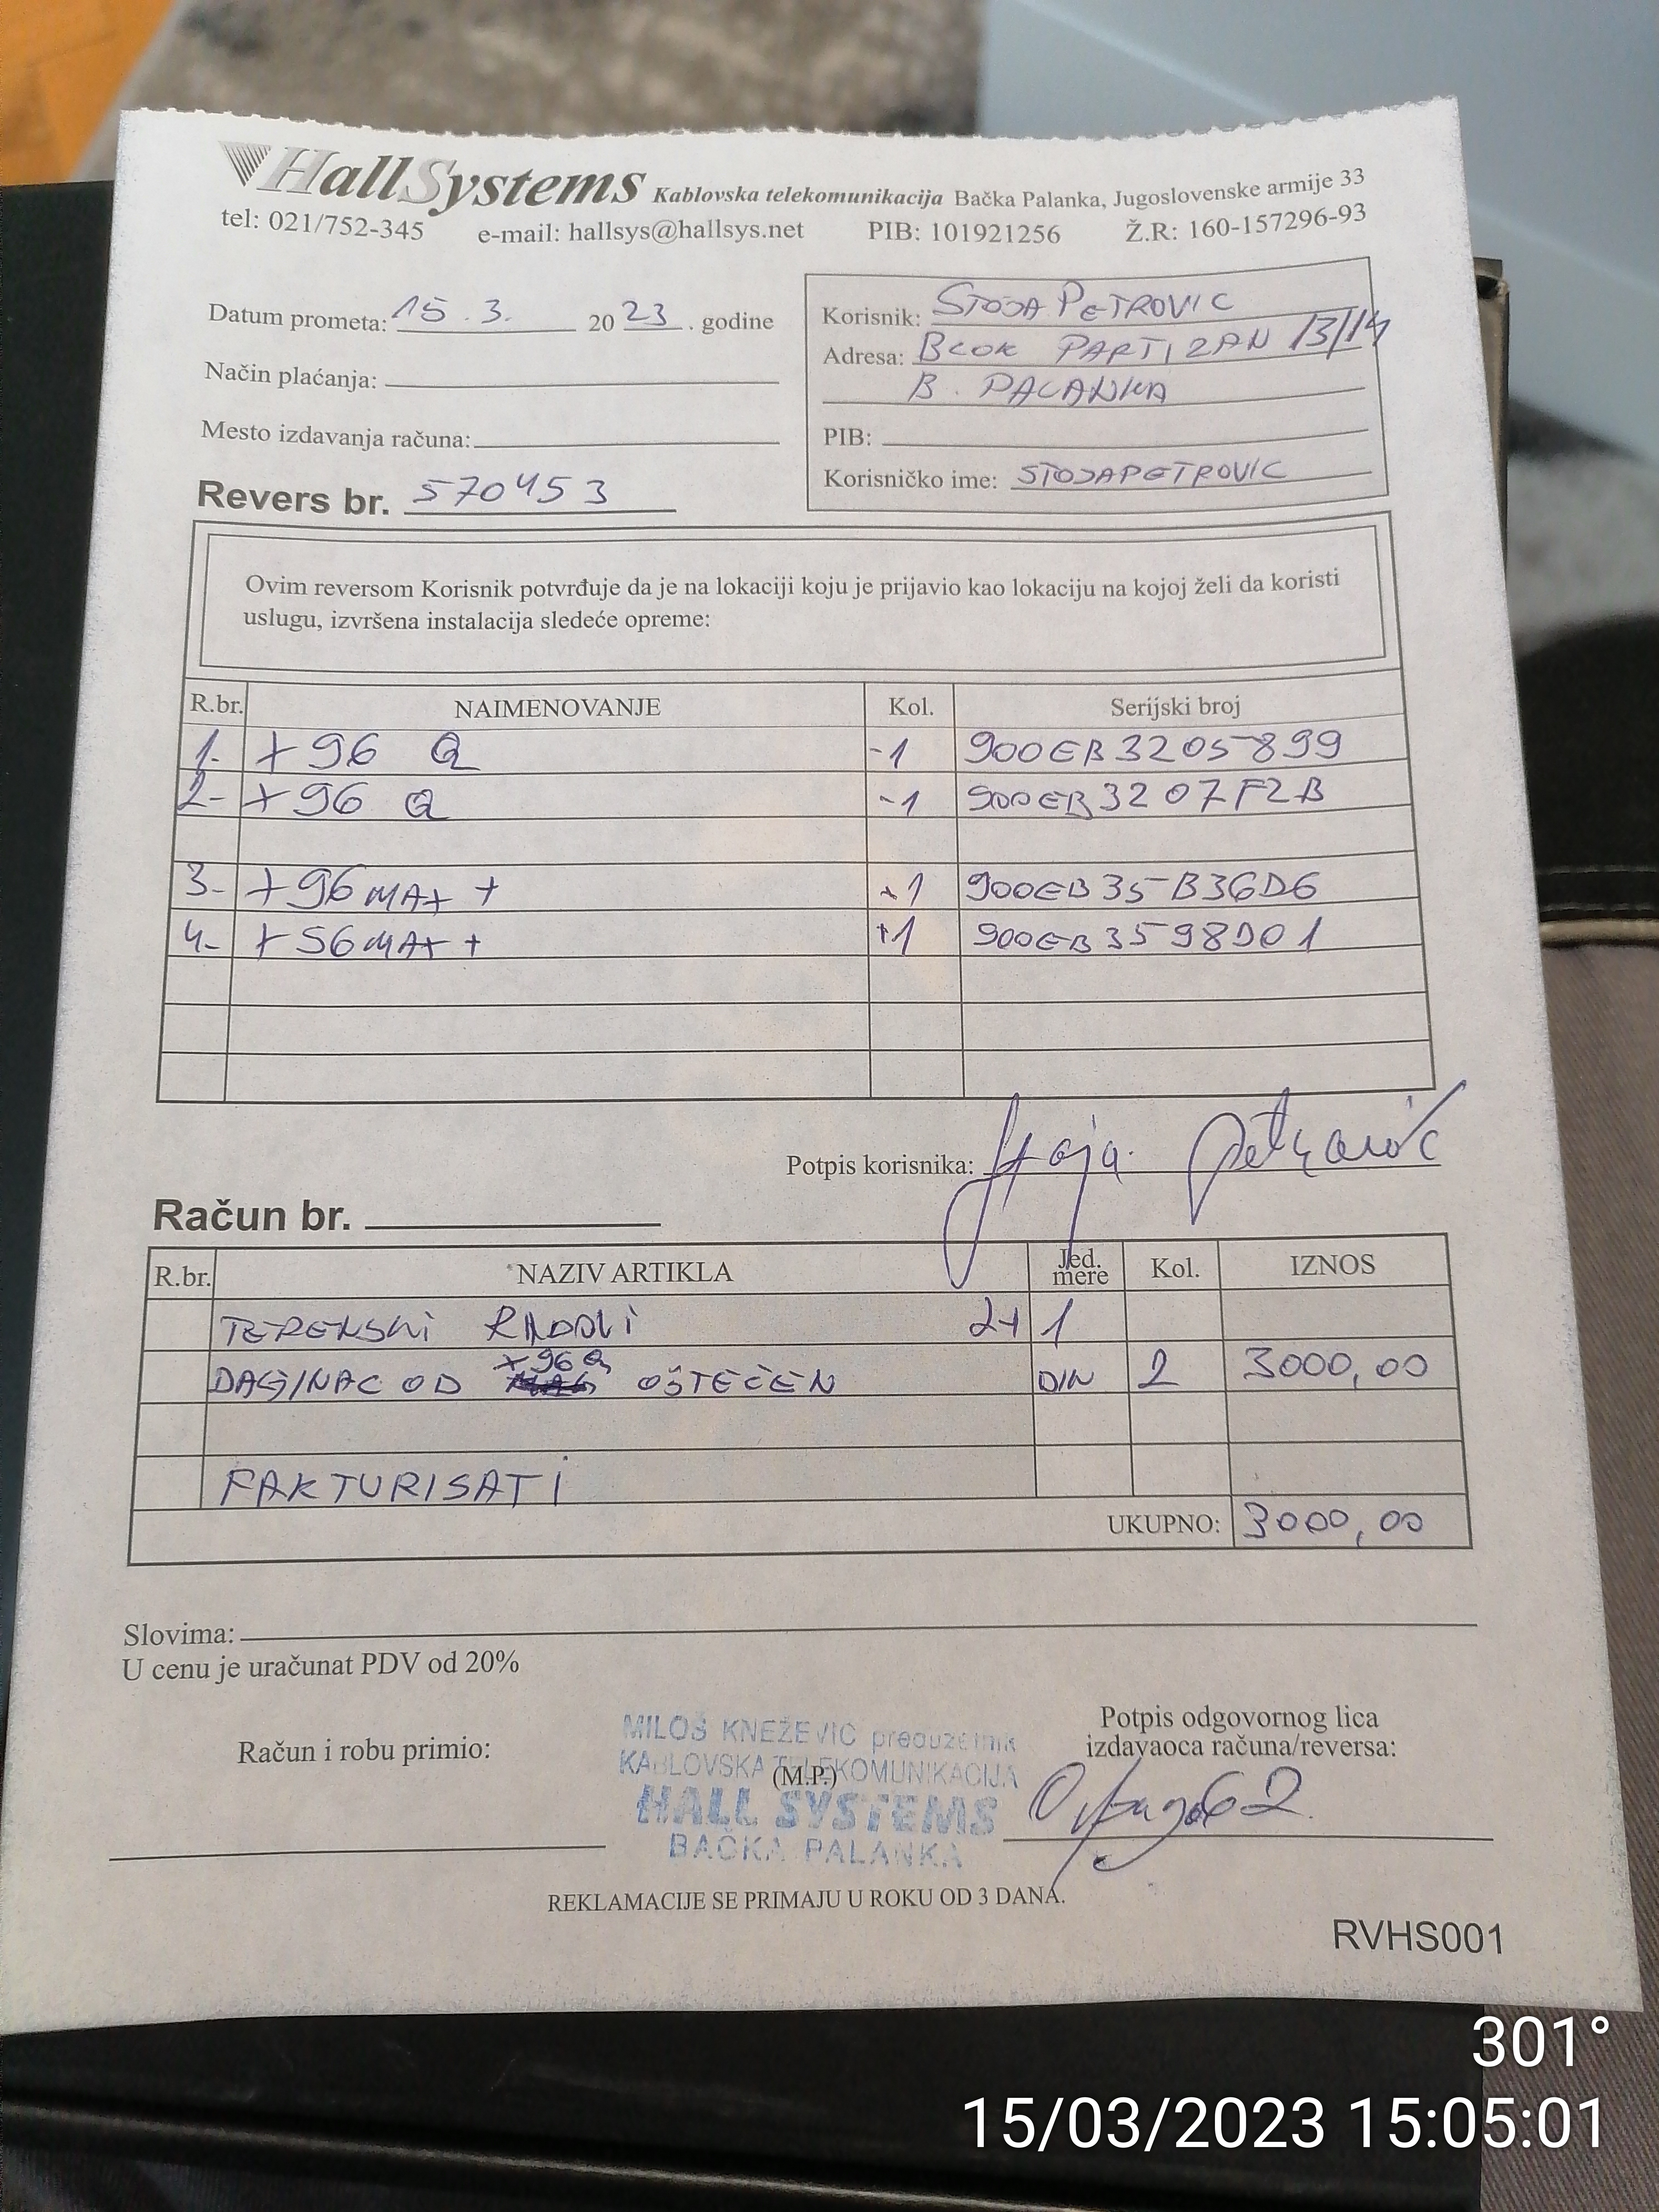 HallSystems Kablovska telekomunikacija Bačka Palanka, Jugoslovenske armije 33
tel: 021/752-345 e-mail: hallsys@hallsys.net PIB: 101921256 Ž.R: 160-157296-93
Datum prometa: 15.3. 2023. godine
Način plaćanja:
Mesto izdavanja računa:
Revers br. 570453
Korisnik: STOJA PETROVIC
Adresa: BLOK PARTIZAN 13/14
B. PALANKA
PIB:
Korisničko ime: STOJAPETROVIC
Ovim reversom Korisnik potvrđuje da je na lokaciji koju je prijavio kao lokaciju na kojoj želi da koristi
uslugu, izvršena instalacija sledeće opreme:
R.br. NAIMENOVANJE Kol. Serijski broj
1. X96 Q -1 900EB3205899
2- X96 Q -1 900EB3207F2B
3- X96 MAX + +1 900EB35B36D6
4- X96 MAX + +1 900EB3598D01
Potpis korisnika: Stoja Petrović
Račun br.
R.br. NAZIV ARTIKLA Jed. mere Kol. IZNOS
TERENSKI RADOVI 2+1
OD X96 Q OŠTEĆEN DIN 2 3000,00
FAKTURISATI
UKUPNO: 3000,00
Slovima:
U cenu je uračunat PDV od 20%
Račun i robu primio:
MILOŠ KNEŽEVIĆ preduzetnik
KABLOVSKA TELEKOMUNIKACIJA
(M.P.)
HALL SYSTEMS
BAČKA PALANKA
Potpis odgovornog lica
izdavaoca računa/reversa:
REKLAMACIJE SE PRIMAJU U ROKU OD 3 DANA.
RVHS001
301°
15/03/2023 15:05:01